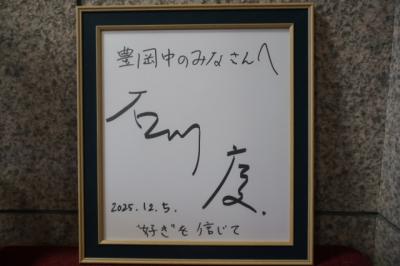 豊岡中のみなさんへ
石川
慶.
2025.12.5.
"好き"を信じて